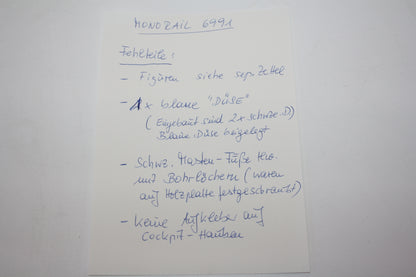 MONORAIL 6991
Fehlteile:
- Figuren siehe sep. Zettel
- 1x blaue "DÜSE"
(Eingebaut sind 2x schwze. D)
Blaue Düse beigelegt
- Schwz. Masten-Füße
mit Bohrlöchern (waren
auf Holzplatte festgeschraubt)
- Keine Aufkleber auf
Cockpit-Hauben